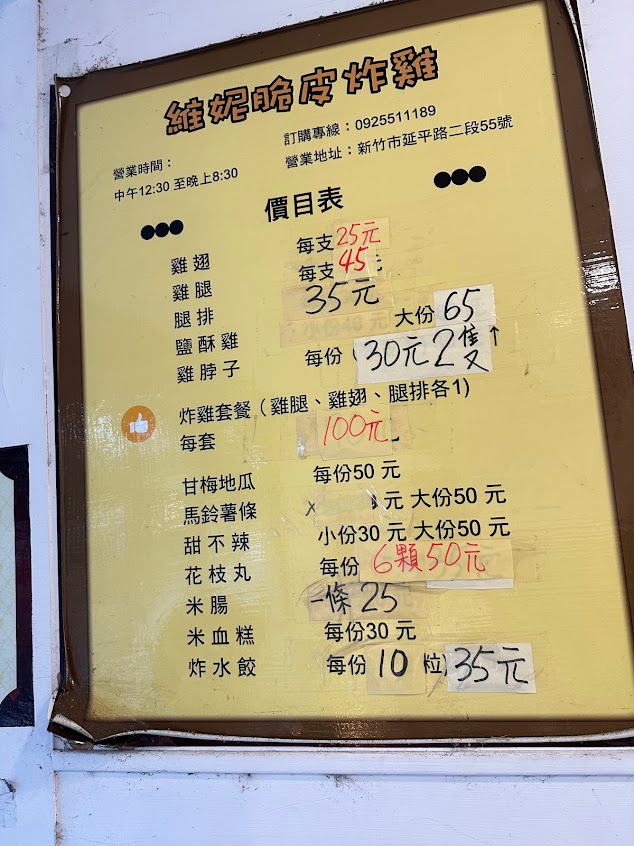 維妮脆皮炸雞
訂購專線：0925511189
營業時間：
營業地址：新竹市延平路二段55號
中午12:30 至晚上8:30
價目表
雞翅 每支25元
雞腿 每支45
腿排 35元
鹽酥雞 小份40元 大份65
雞脖子 每份 30元2隻↑
炸雞套餐（雞腿、雞翅、腿排各1)
每套 100元
甘梅地瓜 每份50 元
馬鈴薯條 元 大份50 元
甜不辣 小份30 元 大份50 元
花枝丸 每份 6顆50元
米腸 一條25
米血糕 每份30 元
炸水餃 每份10粒)35元